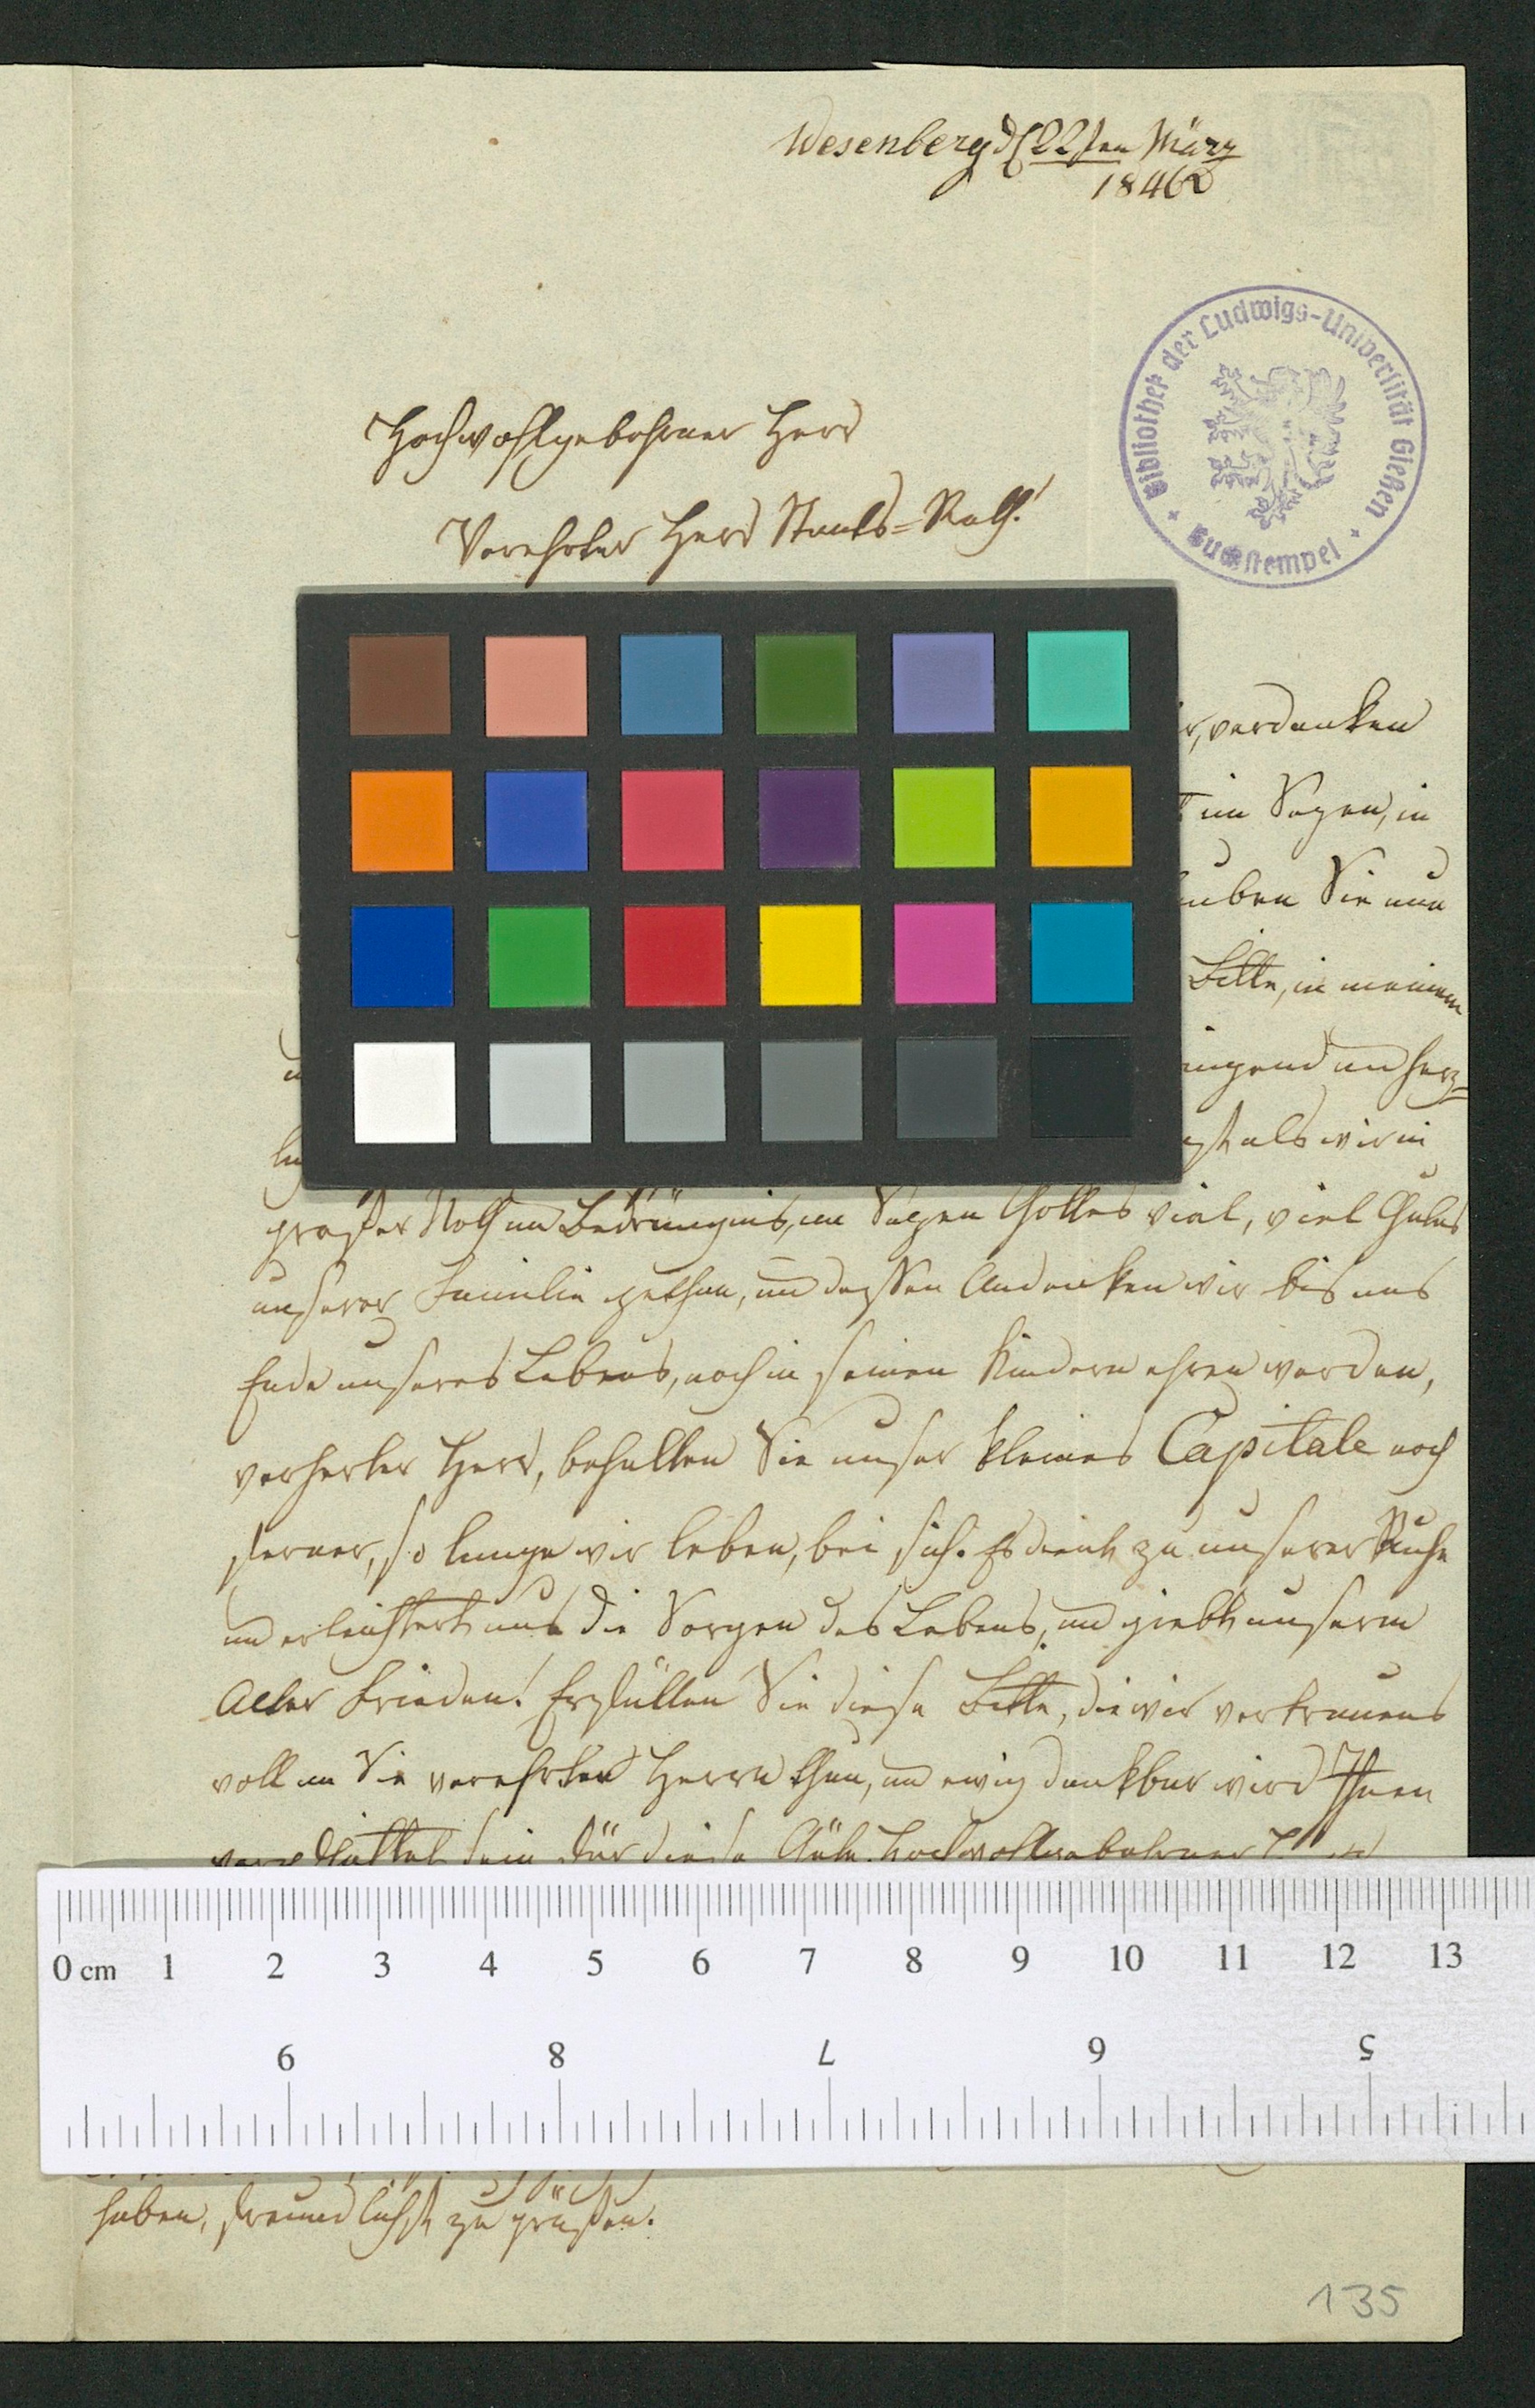 Wesenberg d 22sten März
1846
Bibliothek der Ludwigs-Universität Gießen
Buchstempel
Hochwohlgebohrner Herr
Verehrter Herr Staats=Rath!
verdanken
im Segen, in
Sie nun
Bitte, in meinem
herz=
als wir in
großer Noth un Bedrängnis, im Segen Gottes viel, viel Gutes
unserer Familie gethan, un dessen Andenken wir bis ans
Ende unseres Lebens, noch in seinen Kindern ehren werden,
verherter Herr, behalten Sie unser kleines Capitale noch
ferner, so lange wir leben, bei sich. Es dient zu unserer Ruhe
un erleichtert uns die Sorgen des Lebens, un giebt unserm
Alter Frieden! Erfüllen Sie diese Bitte, die wir vertrauens
voll an Sie verehrter Herrn thun, un ewig dankbar wird Ihnen
sein für diese Güte. Hochwohlgebohrner
0 cm 1 2 3 4 5 6 7 8 9 10 11 12 13
9 8 7 6 5
haben, freundlichst zu grüßen.
135